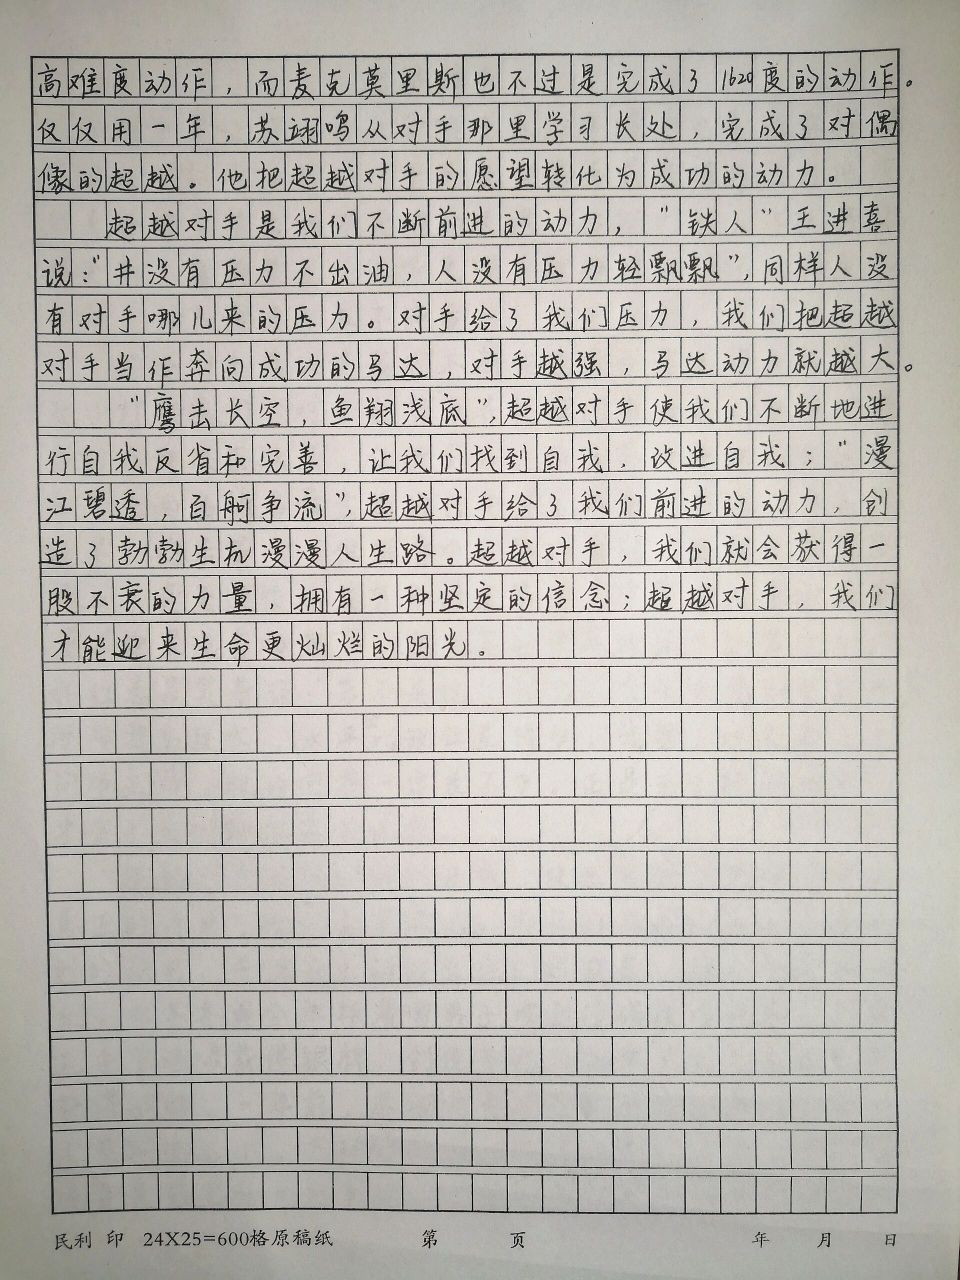 高难度动作，而麦克莫里斯也不过是完成了1620度的动作。
仅仅用一年，苏翊鸣从对手那里学习长处，完成了对偶
像的超越。他把超越对手的愿望转化为成功的动力。
超越对手是我们不断前进的动力，“铁人”王进喜
说：“井没有压力不出油，人没有压力轻飘飘”，同样人没
有对手哪儿来的压力。对手给了我们压力，我们把超越
对手当作奔向成功的马达，对手越强，马达动力就越大。
“鹰击长空，鱼翔浅底”，超越对手使我们不断地进
行自我反省和完善，让我们找到自我，改进自我；“漫
江碧透，百舸争流”，超越对手给了我们前进的动力，创
造了勃勃生机漫漫人生路。超越对手，我们就会获得一
股不衰的力量，拥有一种坚定的信念；超越对手，我们
才能迎来生命更灿烂的阳光。
民利 印 24X25=600格原稿纸 第 页 年 月 日